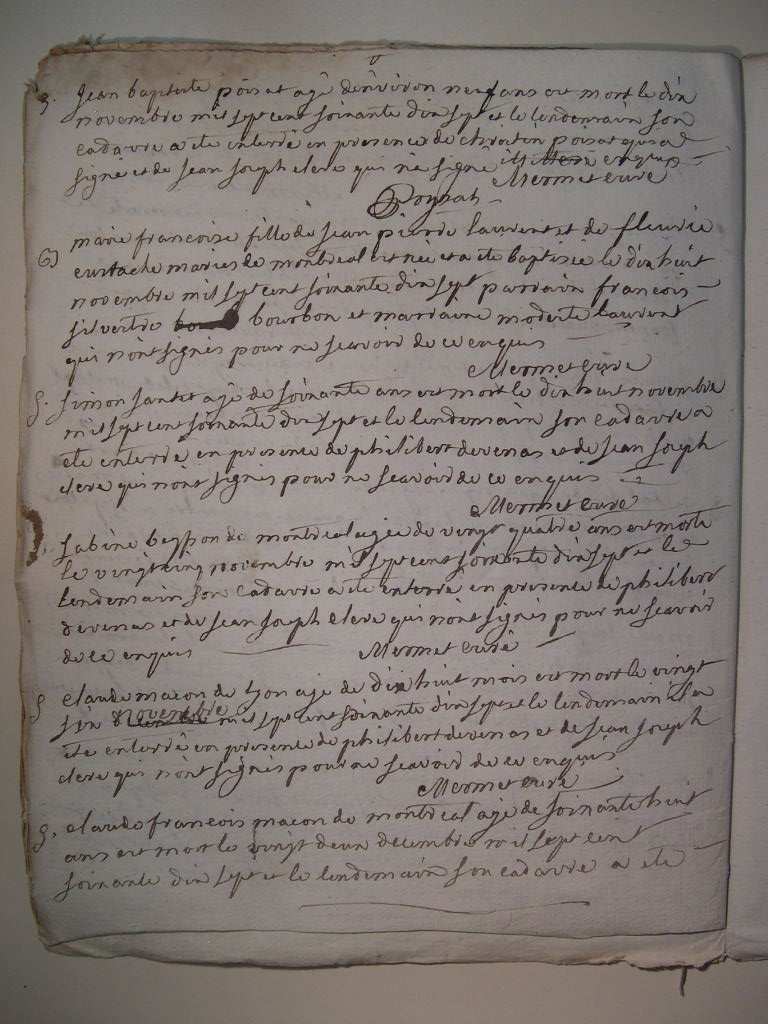 S. Jean baptiste poisat agé denviron neuf ans est mort le dix
novembre mil sept cent soixante dix sept et le lendemain son
cadavre a ete enterré en presence de christin poisat qui a
signé et de Jean Joseph clerc qui ne signe enquis
Mermet curé
Poysat
B marie francoise fille de Jean pierre laurent et de fleurie
eustache maries de montreal est née et a ete baptisée le dix huit
novembre mil sept cent soixante dix sept parrain francois
silvestre bourbon et marraine modeste laurent
qui n'ont signés pour ne scavoir de ce enquis
Mermet curé
S. Simon santet agé de soixante ans est mort le dix huit novembre
mil sept cent soixante dix sept et le lendemain son cadavre a
ete enterré en presence de philibert devenas et de Jean Joseph
clerc qui n'ont signés pour ne scavoir de ce enquis
Mermet curé
S. Sabine beysson de montreal agée de vingt quatre ans est morte
le vingt cinq novembre mil sept cent soixante dix sept et le
lendemain son cadavre a ete enterré en presence de philibert
devenas et de Jean Joseph clerc qui n'ont signés pour ne scavoir
de ce enquis Mermet curé
S claude macon de lyon agé de dix huit mois est mort le vingt
six novembre mil sept cent soixante dix sept et le lendemain il a
ete enterré en presence de philibert devenas et de Jean Joseph
clerc qui n'ont signés pour ne scavoir de ce enquis
Mermet curé
S. claude francois macon de montreal agé de soixante huit
ans est mort le vingt deux decembre mil sept cent
soixante dix sept et le lendemain son cadavre a ete